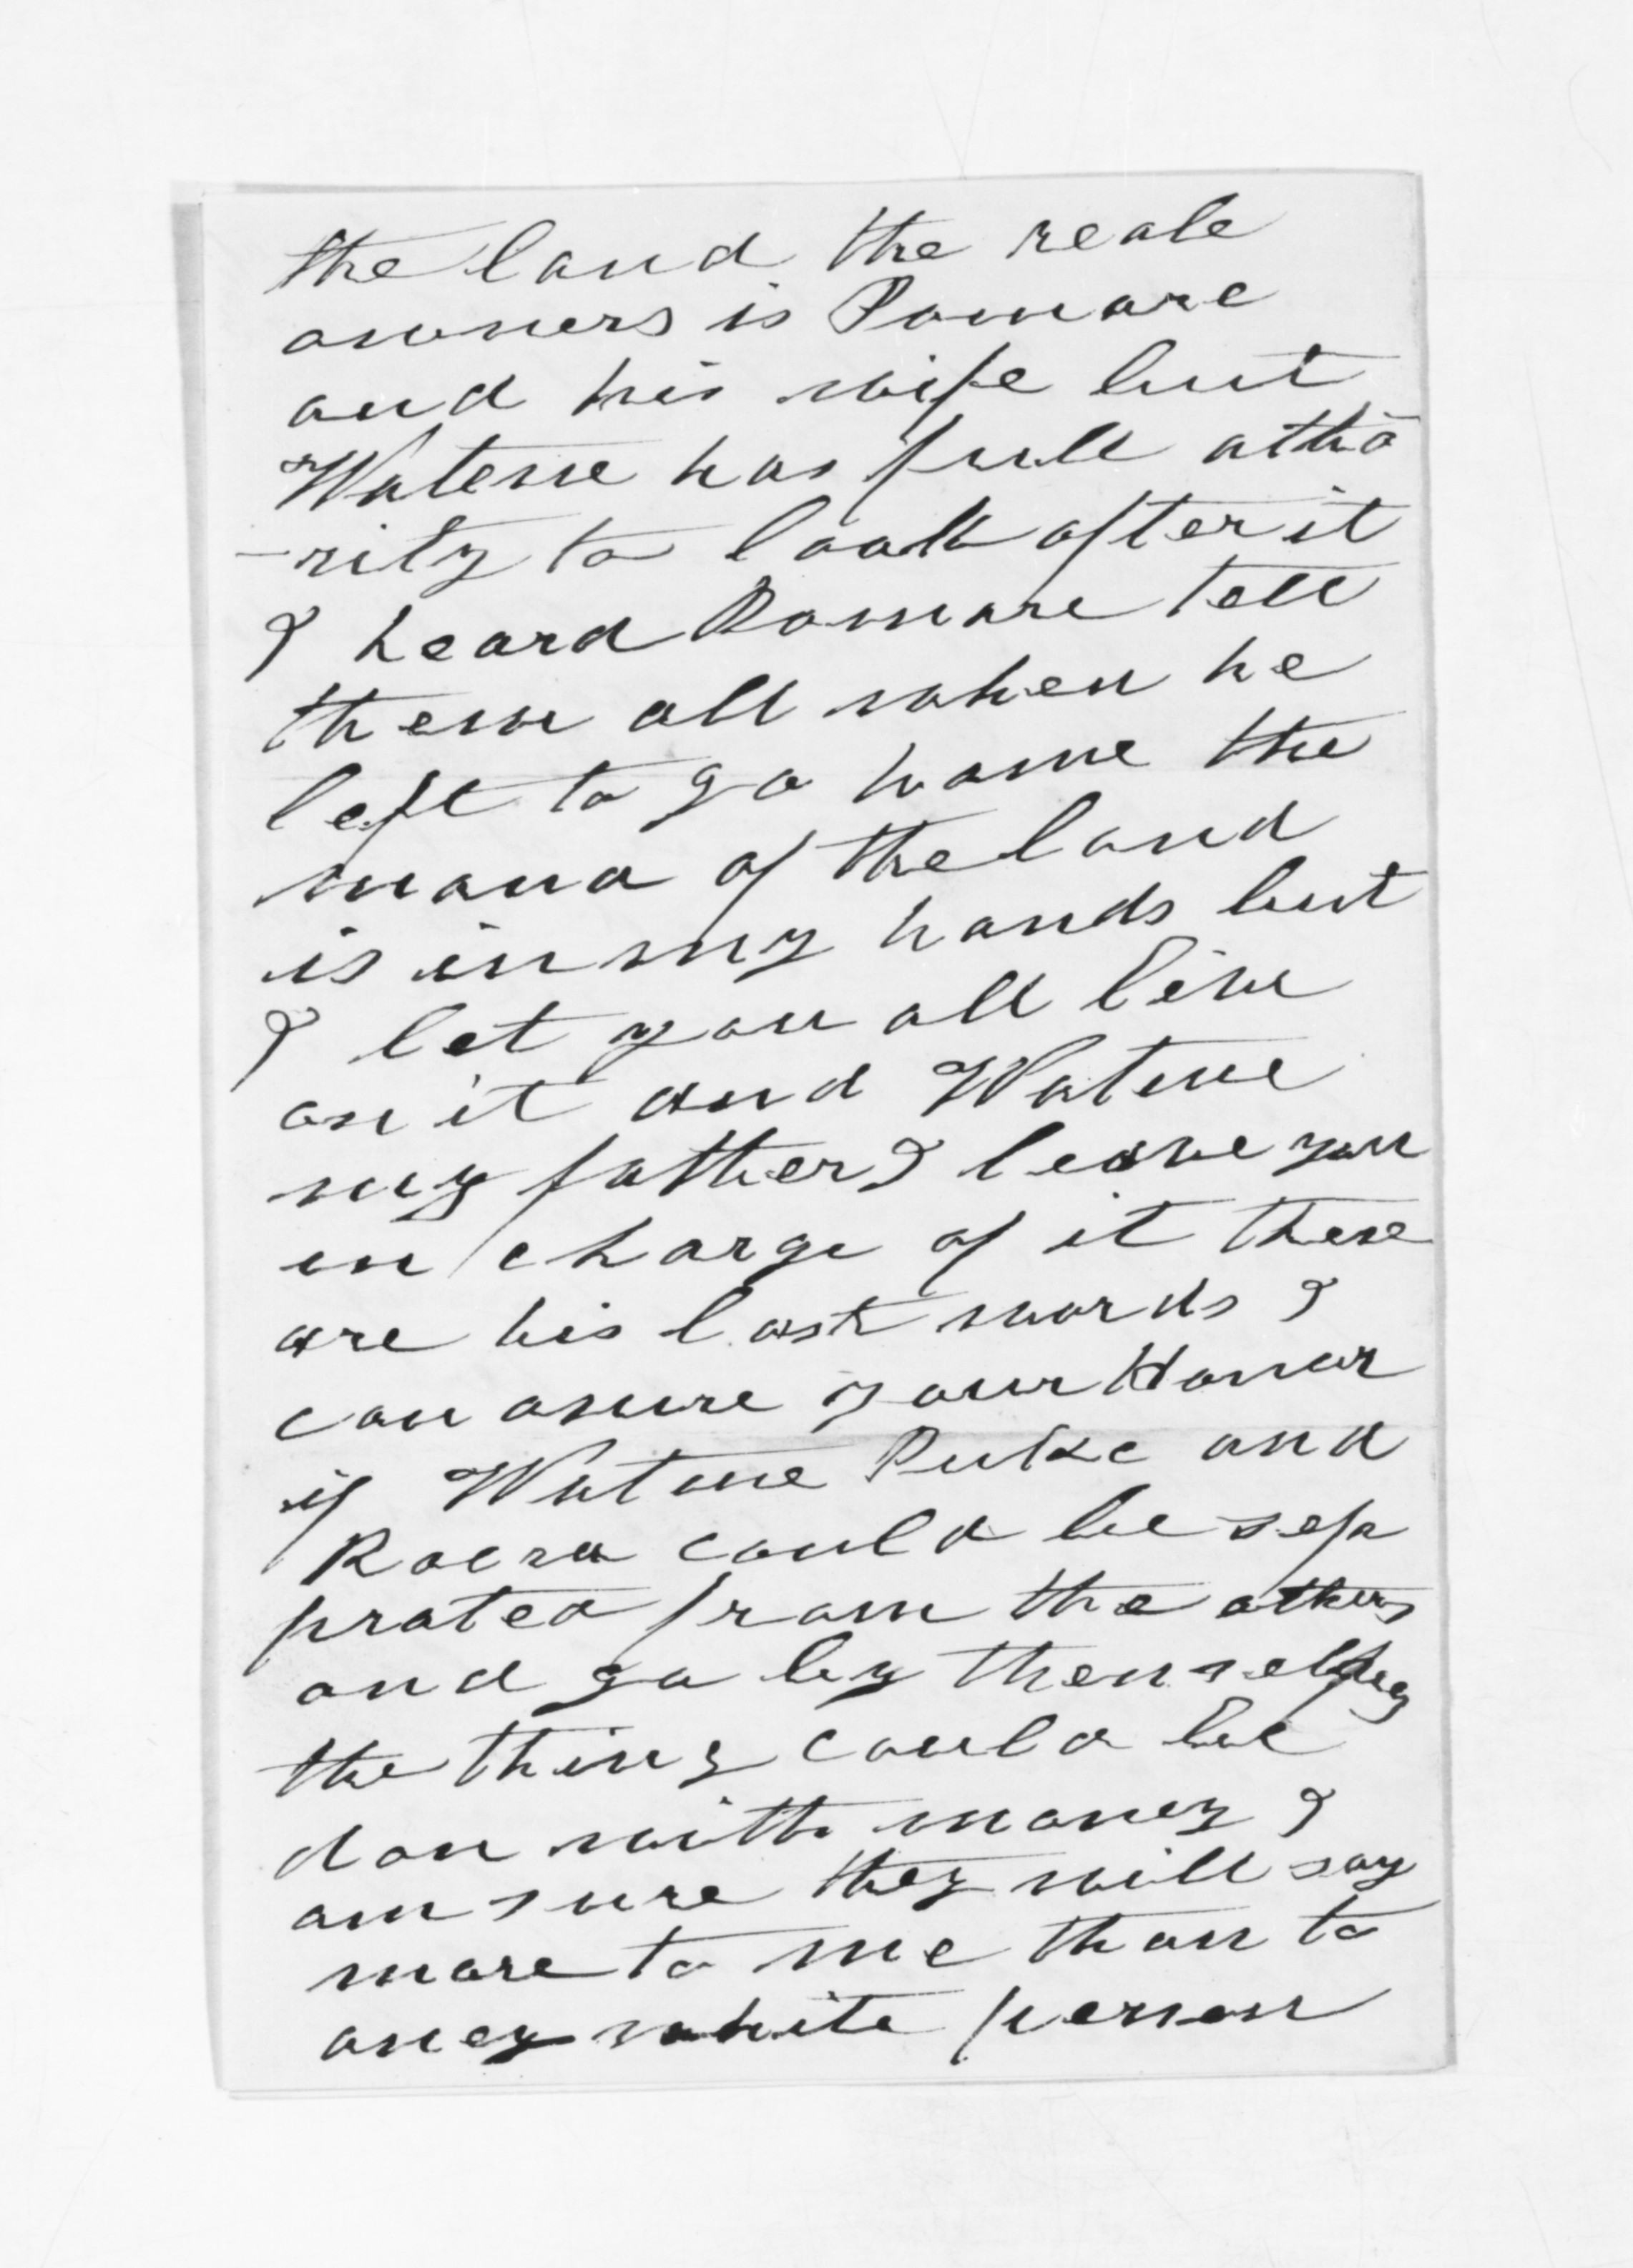 the land the reale
owners is Pomare
and his wife but
Wateme has full atho
-rity to look after it
I heard Pomare tell
them all when he
left to go home the
mana of the land
is in my hands but
I let you all live
on it and Watme
my father I leave you
in charge of it these
are his last words I
can asure your Honor
if Watme Puke and
Rocra could be sep
prated from the others
and go by themselves
the thing could be
don with money I
am sure they will say
more to me than to
aney white person